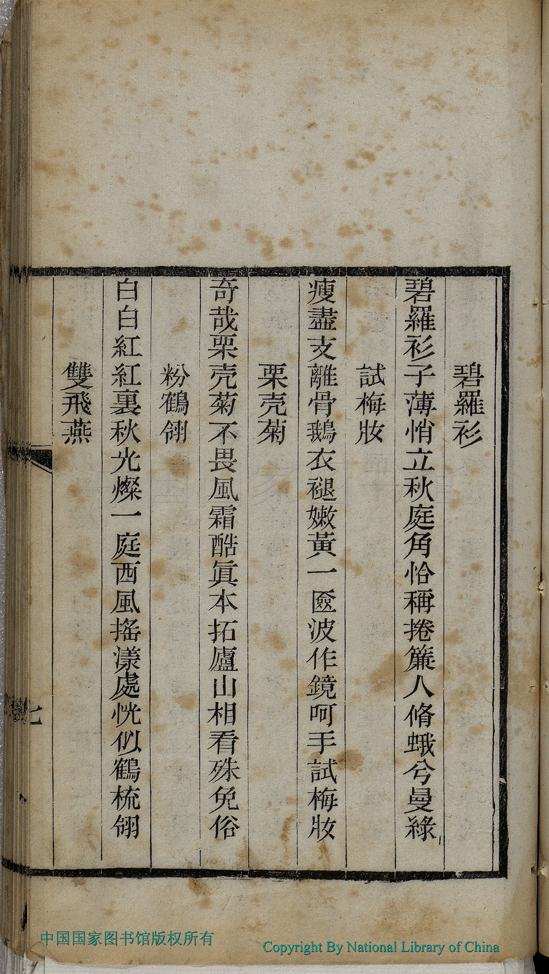 碧羅衫
碧羅衫子薄悄立秋庭角恰稱捲簾人脩蛾兮曼綠
試梅妝
瘦盡支離骨鵝衣褪嫩黃一匳波作鏡呵手試梅妝
栗壳菊
奇哉栗壳菊不畏風霜酷眞本拓廬山相看殊免俗
粉鶴翎
白白紅紅裏秋光燦一庭西風搖漾處恍似鶴梳翎
雙飛燕
七
中国国家图书馆版权所有
Copyright By National Library of China